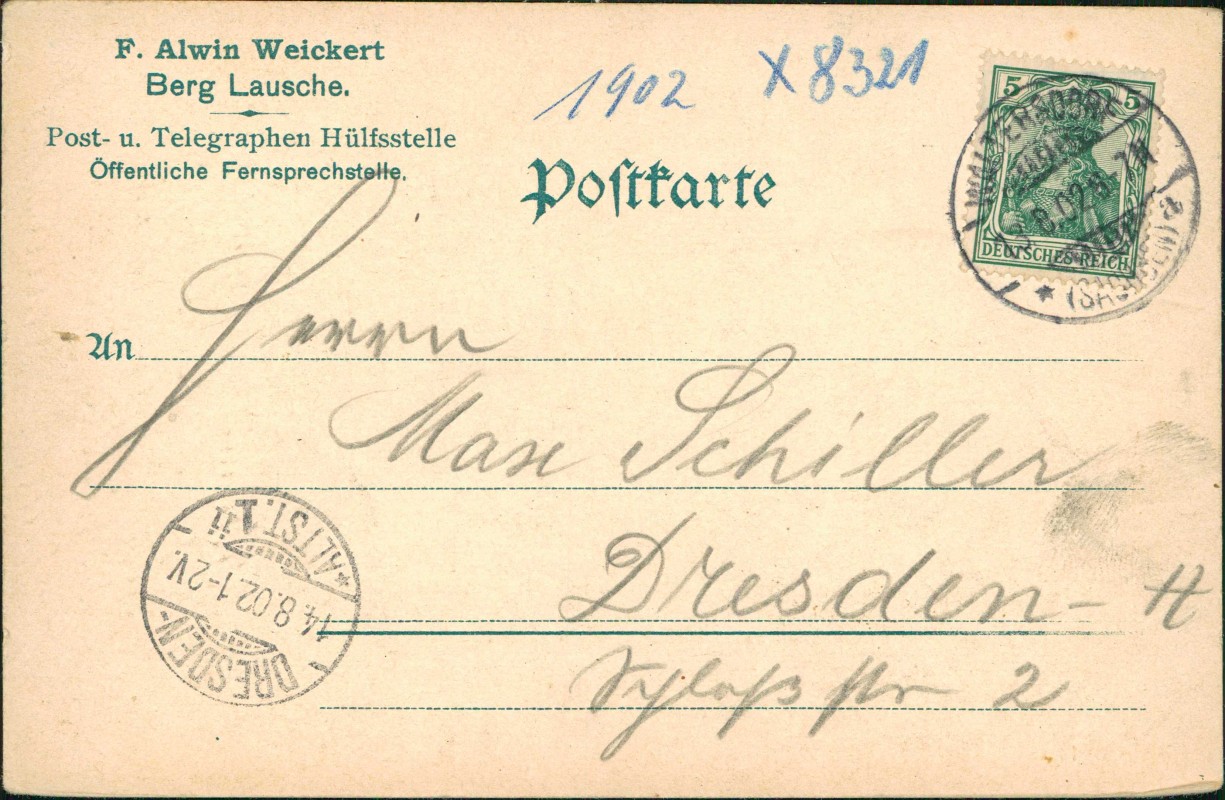 F. Alwin Weickert
Berg Lausche.
Post- u. Telegraphen Hülfsstelle
Öffentliche Fernsprechstelle.
1902 X 8321
Postkarte
5 5
DEUTSCHES REICH
WALTERSDORF
8.02
* (SACHSEN)
An Herrn
Max Schiller
Dresden-A
Schloßstr 2
DRESDEN-
14.8.02.1-2V.
*ALTST.1